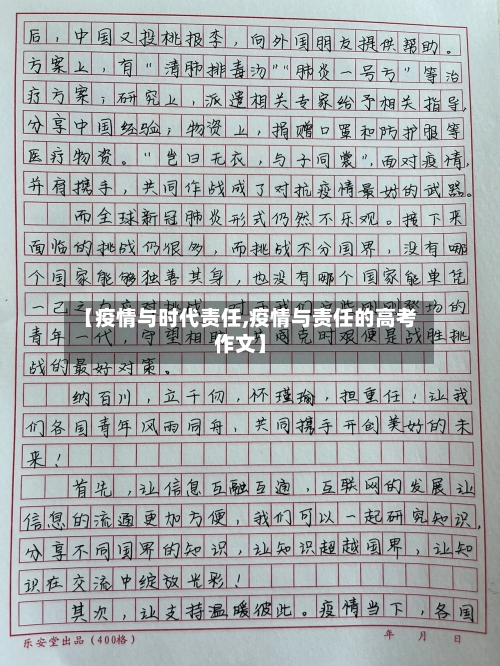 后，中国又投桃报李，向外国朋友提供帮助。
方案上，有“清肺排毒汤”“肺炎一号方”等治
疗方案；研究上，派遣相关专家给予相关指导，
分享中国经验；物资上，捐赠口罩和防护服等
医疗物资。“岂曰无衣，与子同裳”，面对疫情，
并肩携手，共同作战成了对抗疫情最好的武器。
而全球新冠肺炎形式仍然不乐观。接下来
面临的挑战仍很多，而挑战不分国界，没有哪
个国家能够独善其身，也没有哪个国家能单凭
一己之
【疫情与时代责任,疫情与责任的高考
作文】
青年一代，守望相
战胜挑
战的最好对策。
纳百川，立千仞，怀瑾瑜，担重任！让我
们各国青年风雨同舟，共同携手开创美好的未
来！
首先，让信息互融互通，互联网的发展让
信息的流通更加方便，我们可以一起研究知识，
分享不同国界的知识，让知识超越国界，让知
识在交流中绽放光彩！
其次，让支持温暖彼此。疫情当下，各国
乐安堂出品（400格）
年 月 日